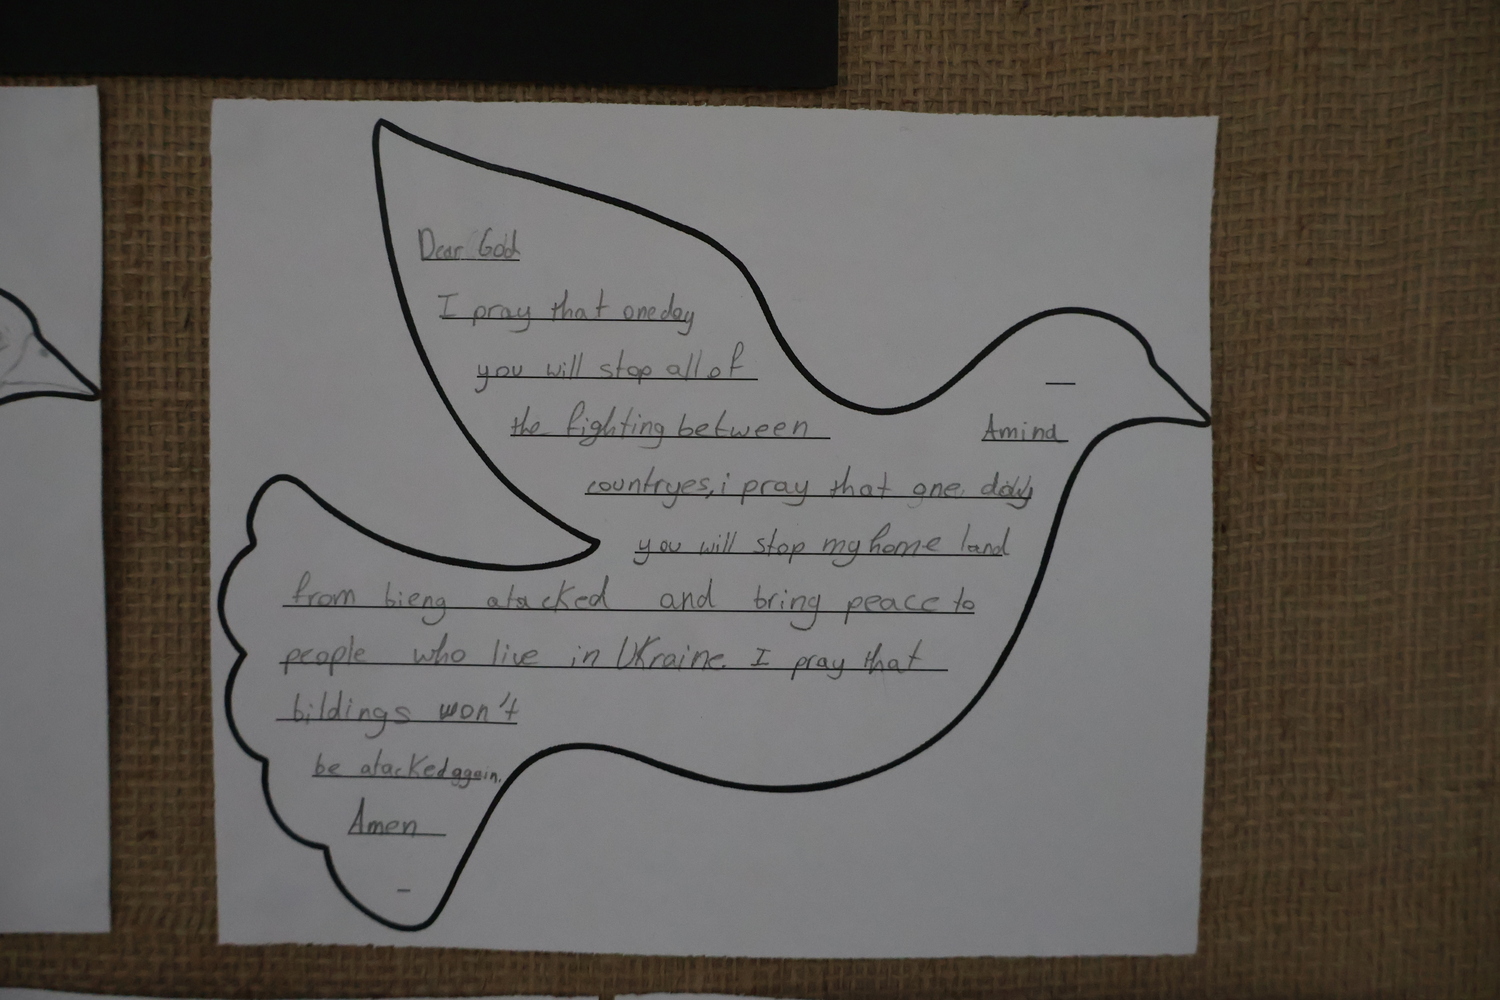 Dear God
I pray that one day
you will stop all of
the fighting between
Amina
countryes, i pray that one day
you will stop my home land
from bieng atacked and bring peace to
people who live in Ukraine. I pray that
bildings won't
be atacked again.
Amen